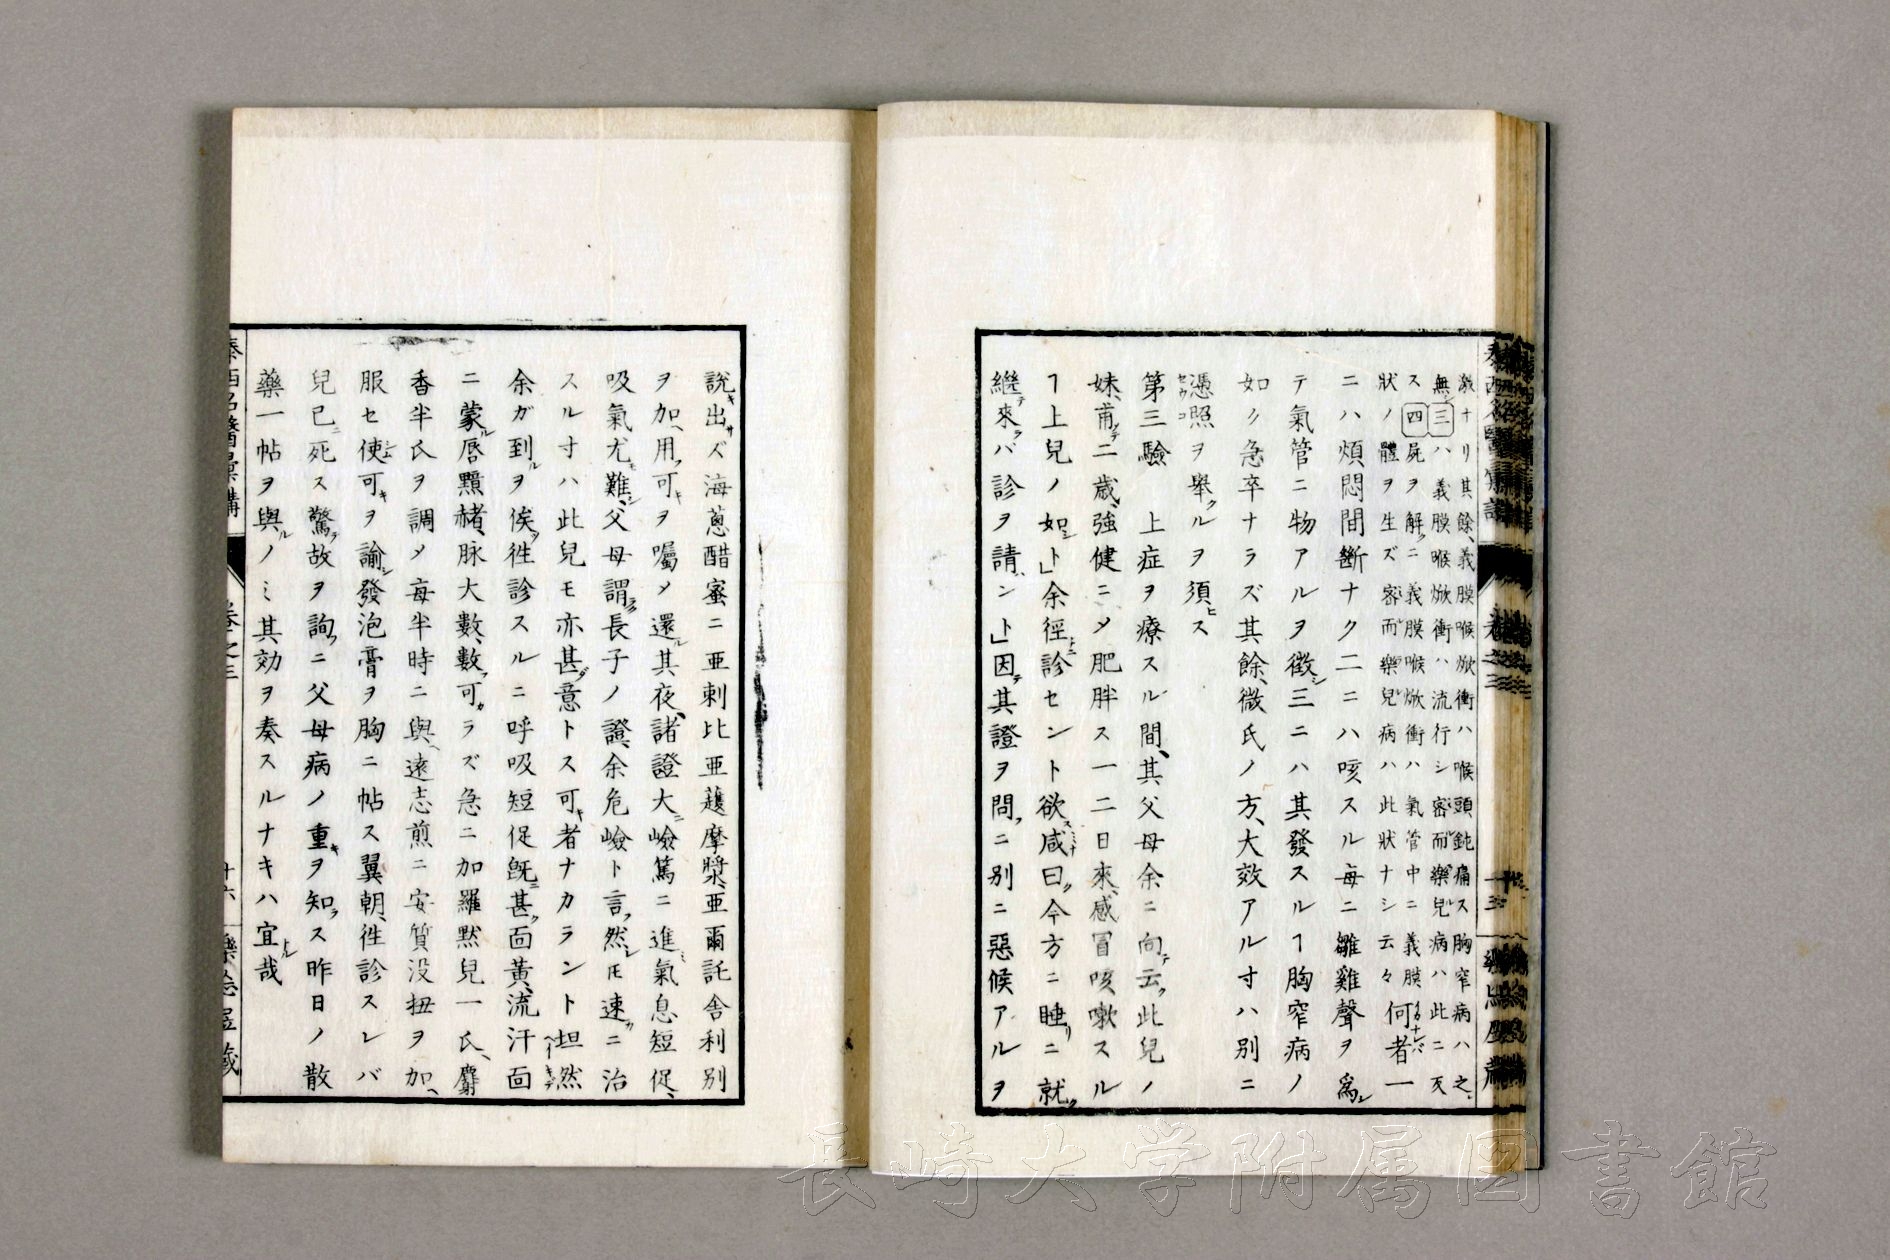 激ナリ其餘、義膜喉焮衝ハ喉頭鈍痛ス胸窄病ハ之
無シ三ハ義膜喉焮衝ハ流行シ密而樂兒病ハ此ニ反
ス四屍ヲ解クニ義膜喉焮衝ハ氣管中ニ義膜
狀ノ體ヲ生ズ密而樂兒病ハ此狀ナシ云々何者一
ニハ煩悶間斷ナク二ニハ咳スル毎ニ雛雞聲ヲ爲シ
テ氣管ニ物アルヲ徴シ三ニハ其發スルヿ胸窄病ノ
如ク急卒ナラズ其餘、微氏ノ方、大效アル寸ハ別ニ
憑照ヲ擧クルヲ須ヒス
第三驗 上症ヲ療スル間、其父母余ニ向テ云ク此兒ノ
妹、甫テ二歳、強健ニメ肥胖ス一二日來、感冒咳嗽スル
ヿ上兒ノ如シト」余徑ニ診セント欲ス咸曰ク今方ニ睡リニ就ク
繼テ來ラバ診ヲ請ハント」因テ其證ヲ問フニ別ニ惡候アルヲ
說キ出サズ海蔥醋蜜ニ亞刺比亞護摩漿、亞爾託舎利別
ヲ加ヘ、用フ可キヲ囑メ還ル其夜、諸證大ニ嶮篤ニ進ミ氣息短促、
吸氣尤モ難シ、父母謂ラク長子ノ證、余危嶮ト言フ、然レ𪜈速カニ治
スル寸ハ此兒モ亦甚ダ意トス可キ者ナカラント坦然
余ガ到ルヲ俟ツ徃診スルニ呼吸短促既ニ甚ク面黄、流汗面
ニ蒙ル唇黯赭、脉大數、數フ可カラズ急ニ加羅默兒一氏、麝
香半氏ヲ調メ毎半時ニ與ヘ遠志煎ニ安質没扭ヲ加ヘ、
服セ使ム可キヲ諭シ發泡膏ヲ胸ニ帖ス翼朝、徃診スレバ
兒已ニ死ス驚テ故ヲ詢フニ父母病ノ重キヲ知ラス昨日ノ散
藥一帖ヲ與ルノミ其効ヲ奏スルナキハ宜ナル哉
泰西名醫彙講
卷之三
十六